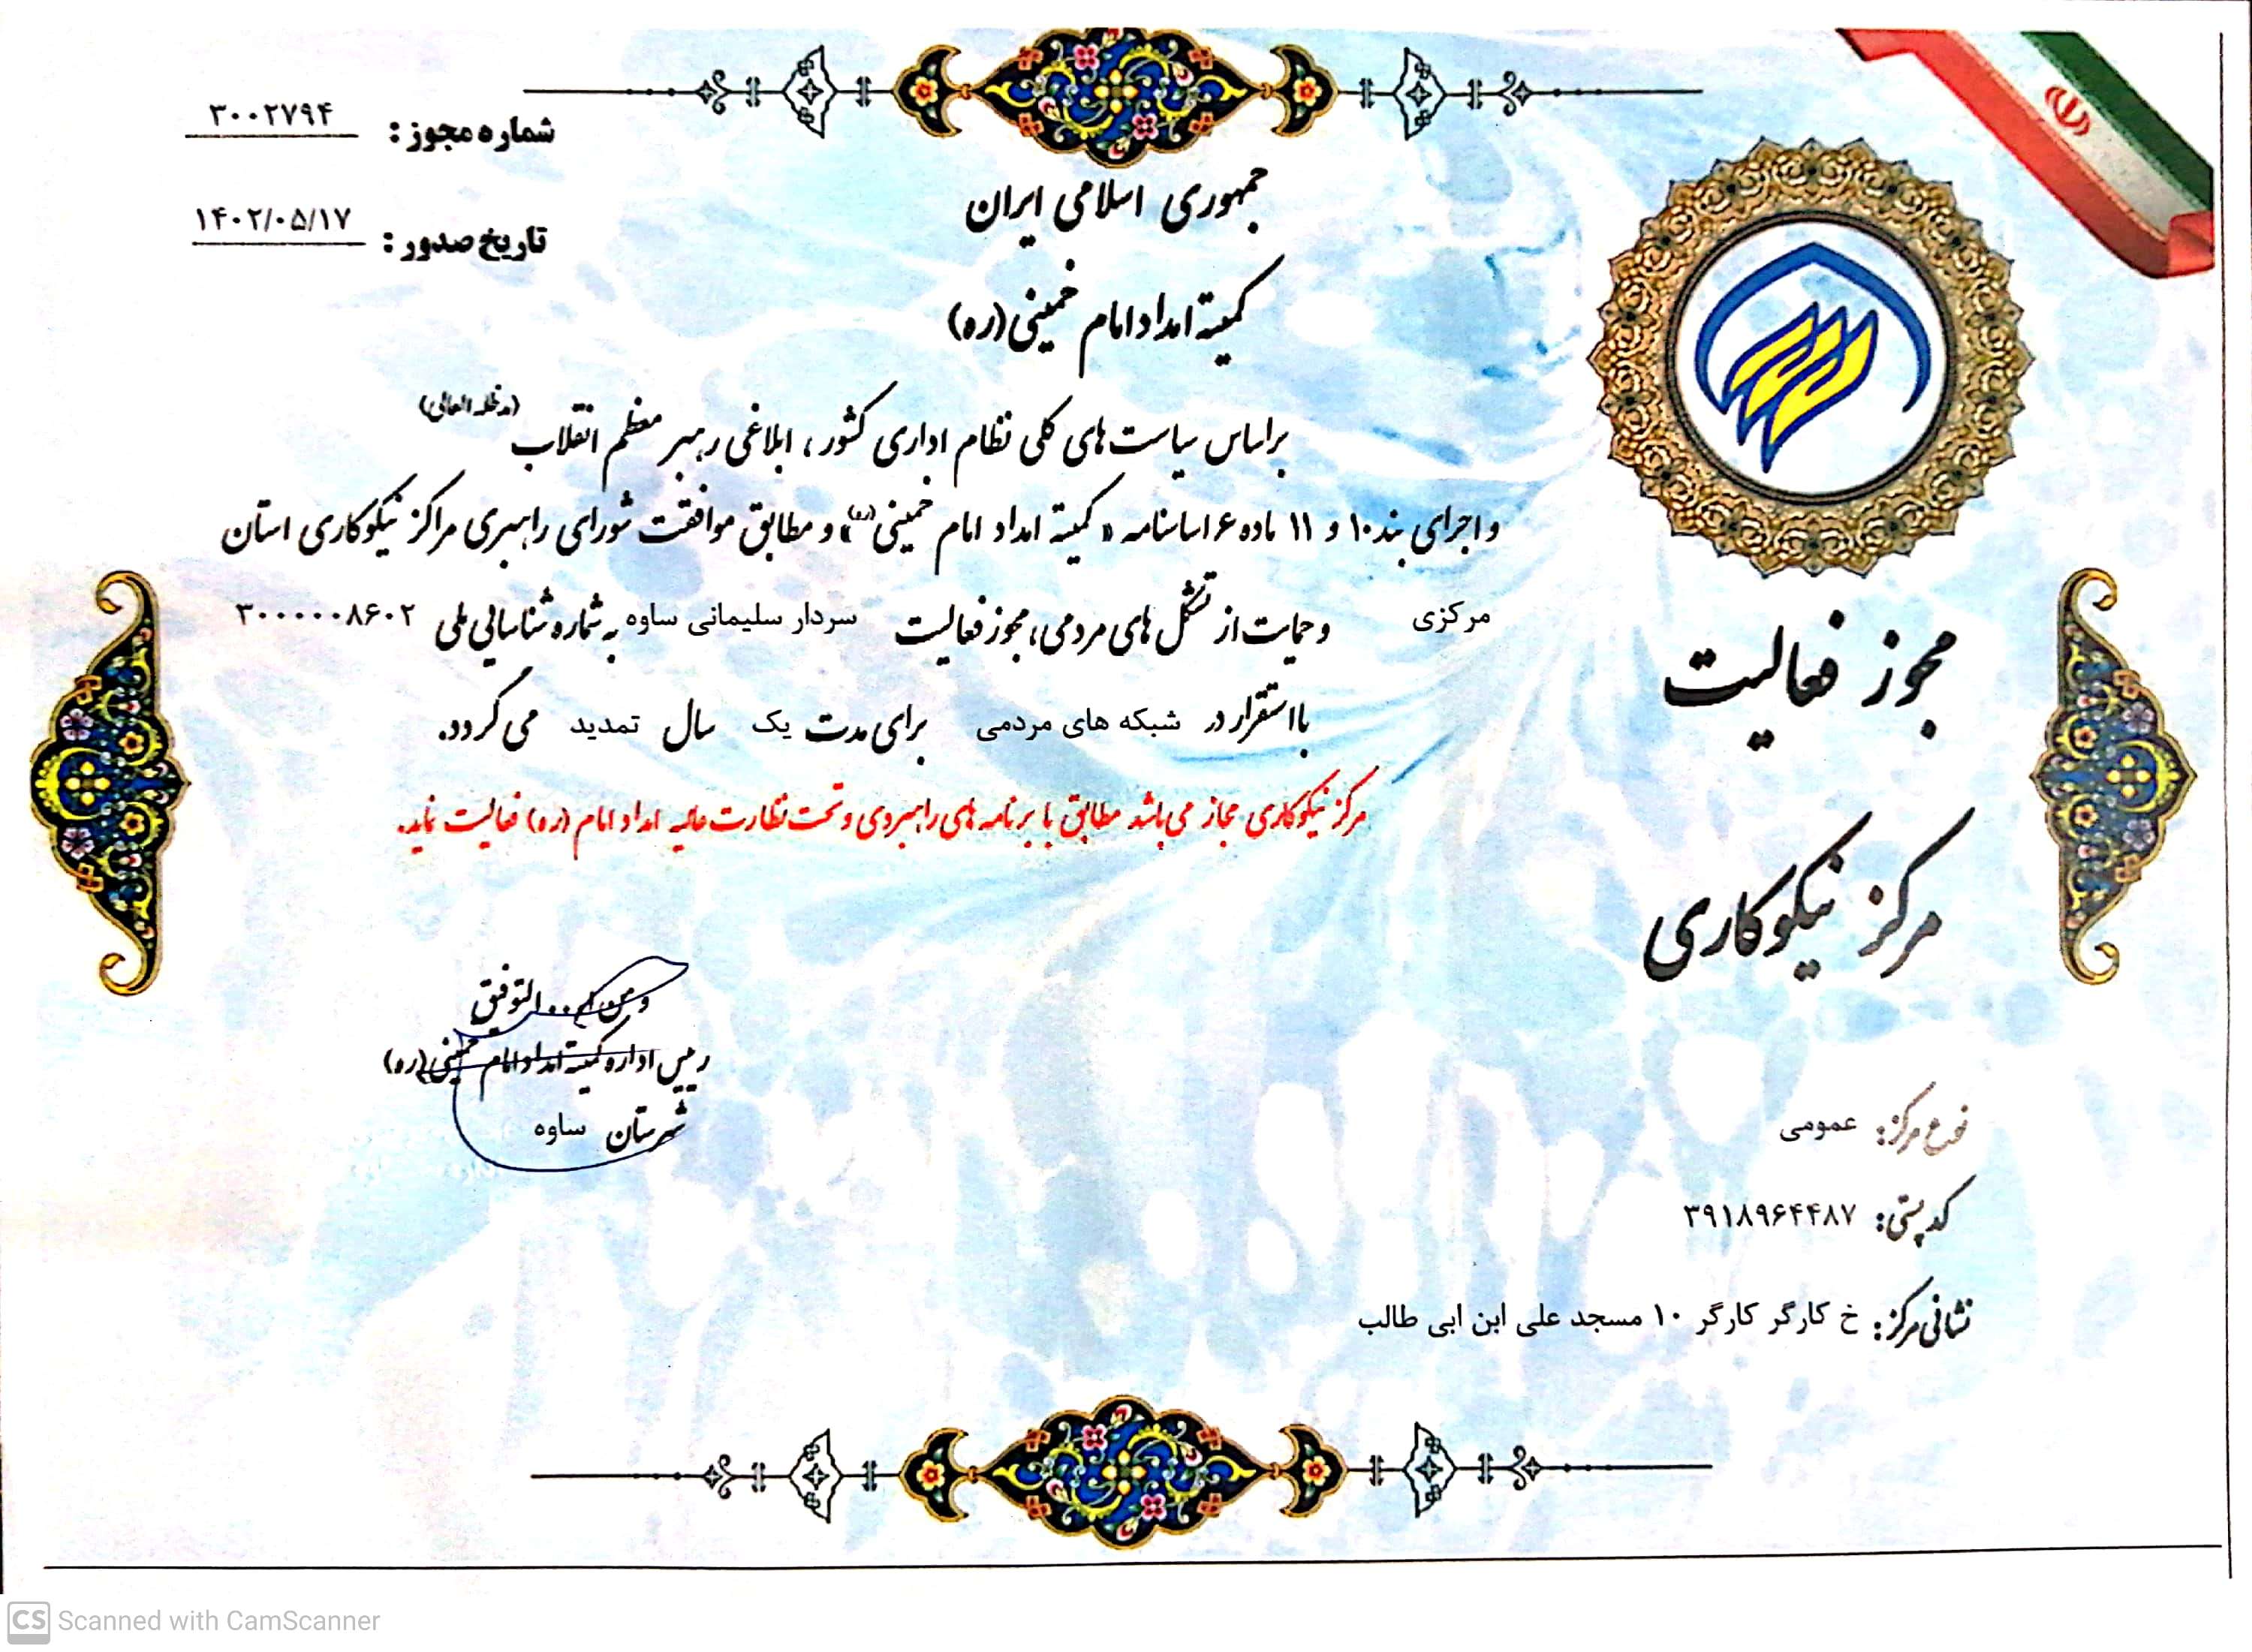 شماره مجوز: ۳۰۰۲۷۹۴
تاریخ صدور: ۱۴۰۲/۰۵/۱۷
جمهوری اسلامی ایران
کمیته امداد امام خمینی(ره)
براساس سیاست های کلی نظام اداری کشور، ابلاغی رهبر معظم انقلاب (مدظله العالی)
و اجرای بند ۱۰ و ۱۱ ماده ۶ اساسنامه «کمیته امداد امام خمینی(ره)» و مطابق موافقت شورای راهبری مراکز نیکوکاری استان
مرکزی و حمایت از تشکل های مردمی، مجوز فعالیت سردار سلیمانی ساوه به شماره شناسایی ملی ۳۰۰۰۰۰۸۶۰۲
با استقرار در شبکه های مردمی برای مدت یک سال تمدید می گردد.
مرکز نیکوکاری مجاز می باشد مطابق با برنامه های راهبردی و تحت نظارت عالیه امداد امام (ره) فعالیت نماید.
مجوز فعالیت
مرکز نیکوکاری
و من ا... التوفیق
رییس اداره کمیته امداد امام خمینی(ره)
شهرستان ساوه
نوع مرکز: عمومی
کد پستی: ۳۹۱۸۹۶۴۴۸۷
نشانی مرکز: خ کارگر کارگر ۱۰ مسجد علی ابن ابی طالب
CS Scanned with CamScanner